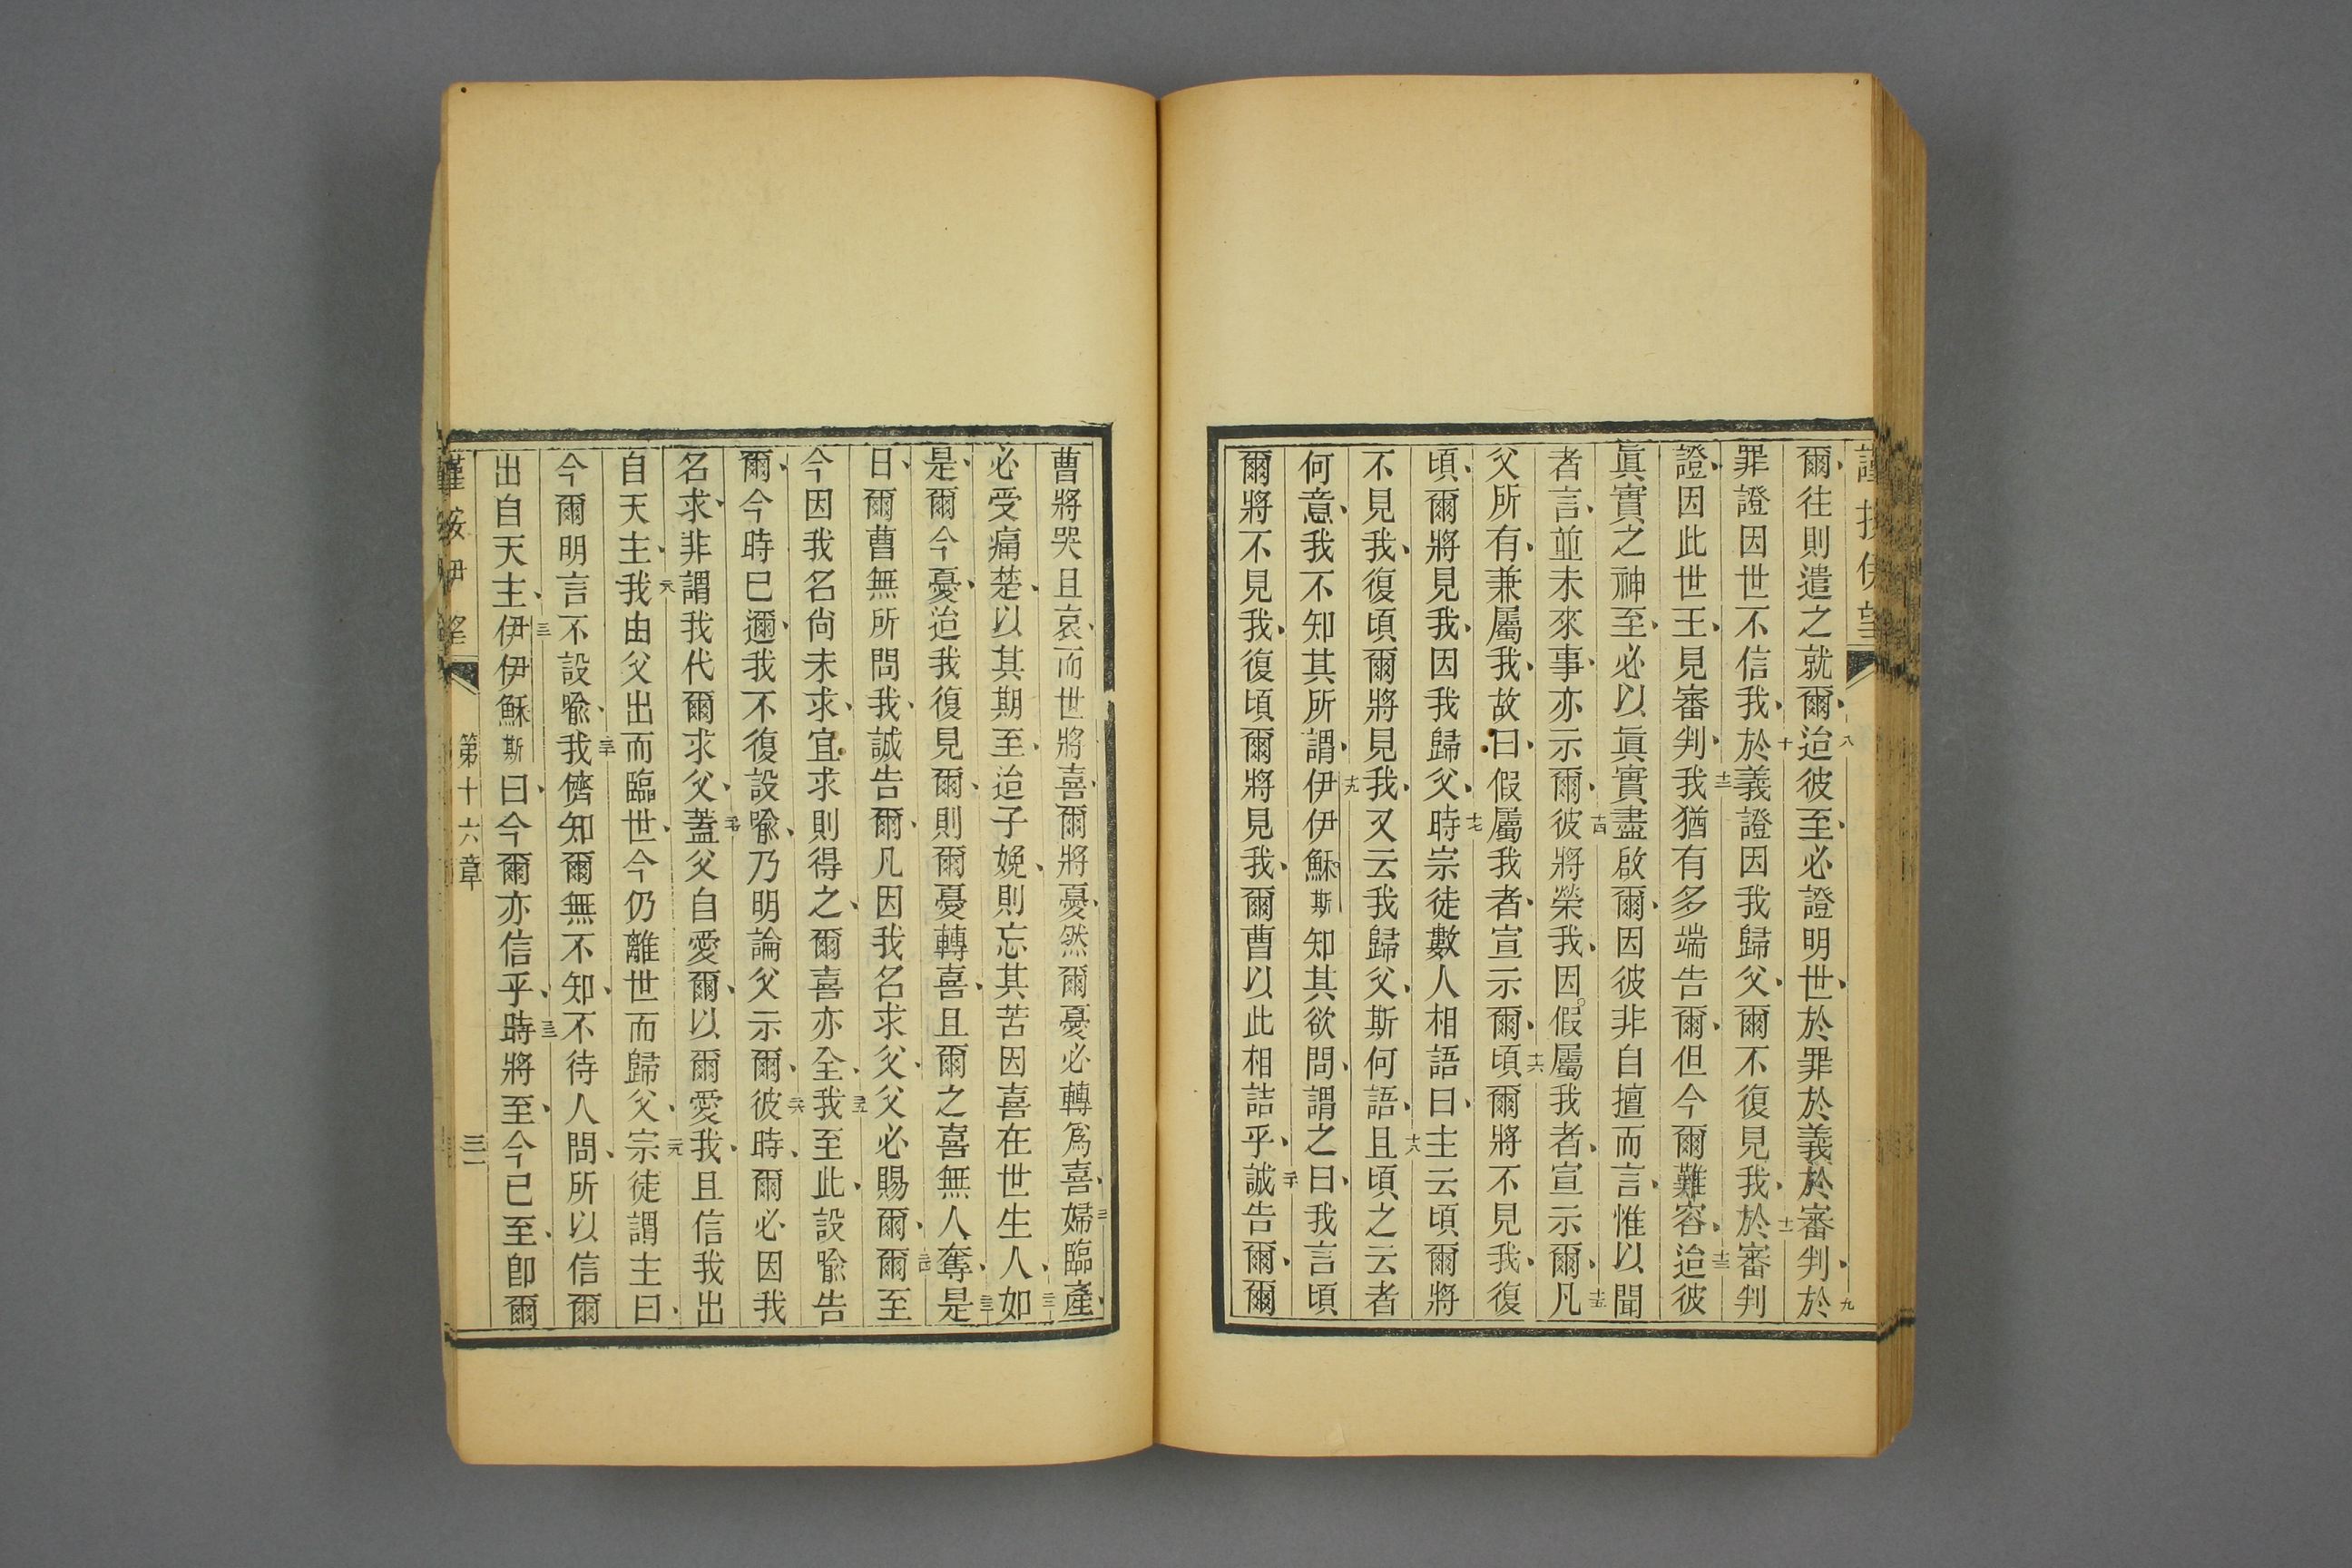 爾、往則遣之就爾、八迨彼至、必證明世、於罪於義於審判、九於
罪證因世不信我、十於義證因我歸父、爾不復見我、十一於審判
證、因此世王、見審判、十二我猶有多端告爾、但今爾難容、十三迨彼
眞實之神至、必以眞實盡啟爾、因彼非自擅而言、惟以聞
者言、並未來事、亦示爾、十四彼將榮我、因假屬我者、宣示爾、十五凡
父所有、兼屬我、故曰、假屬我者、宣示爾、十六頃爾將不見我、復
頃、爾將見我、因我歸父、十七時宗徒數人相語曰、主云頃爾將
不見我、復頃爾將見我、又云我歸父、斯何語、十八且頃之云者
何意、我不知其所謂、十九伊伊穌斯知其欲問、謂之曰、我言頃
爾將不見我、復頃爾將見我、爾曹以此相詰乎、二十誠告爾、爾
曹將哭且哀、而世將喜、爾將憂、然爾憂必轉爲喜、二一婦臨產、
必受痛楚、以其期至、迨子娩、則忘其苦因喜在世生人、二二如
是、爾今憂、迨我復見爾、則爾憂轉喜、且爾之喜無人奪、二三是
日、爾曹無所問我、誠告爾、凡因我名求父、父必賜爾、二四爾至
今因我名尚未求、宜求則得之、爾喜亦全、二五我至此、設喻告
爾、今時已邇、我不復設喻、乃明論父示爾、二六彼時、爾必因我
名求、非謂我代爾求父、二七蓋父自愛爾、以爾愛我、且信我出
自天主、二八我由父出而臨世、今仍離世而歸父、二九宗徒謂主曰、
今爾明言不設喻、三十我儕知爾無不知、不待人問、所以信爾
出自天主、三一伊伊穌斯曰、今爾亦信乎、三二時將至、今已至、卽爾
第十六章
三一